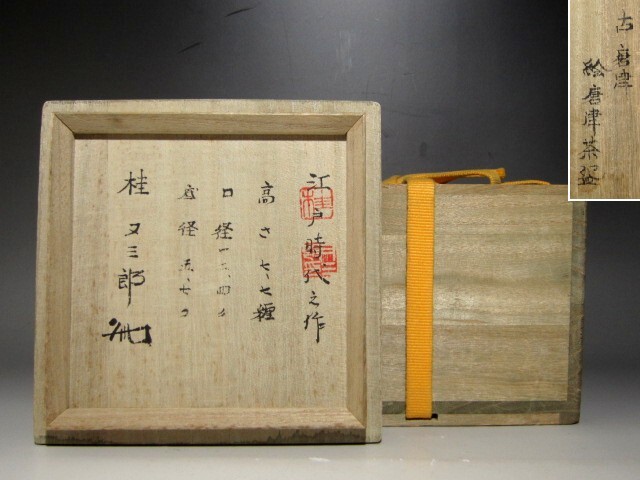 江戸時代之作
高さ七、七糎
口径一三、四〃
底径五、七〃
桂又三郎
古唐津
絵唐津茶盌